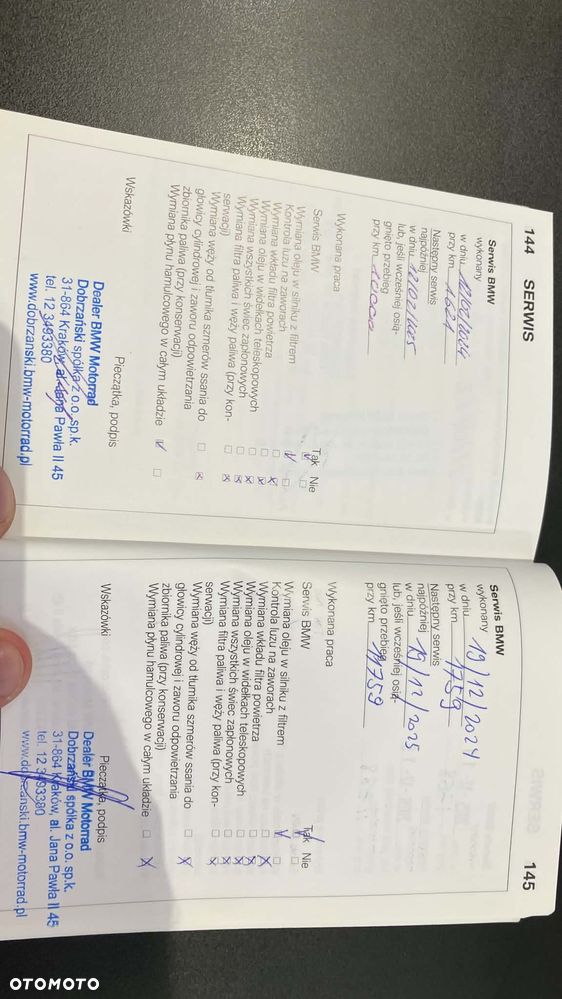 144 SERWIS
Serwis BMW
wykonany
w dniu 12/02/2024
przy km 1621
Następny serwis
najpóźniej
w dniu 12/02/2025
lub, jeśli wcześniej osią-
gnięto przebieg
przy km 10000
Wykonana praca
Tak Nie
Serwis BMW
Wymiana oleju w silniku z filtrem
Kontrola luzu na zaworach
Wymiana wkładu filtra powietrza
Wymiana oleju w widełkach teleskopowych
Wymiana wszystkich świec zapłonowych
Wymiana filtra paliwa i węży paliwa (przy kon-
serwacji)
Wymiana węży od tłumika szmerów ssania do
głowicy cylindrowej i zaworu odpowietrzania
zbiornika paliwa (przy konserwacji)
Wymiana płynu hamulcowego w całym układzie
Wskazówki
Pieczątka, podpis
Dealer BMW Motorrad
Dobrzański spółka z o.o. sp.k.
31-864 Kraków, al. Jana Pawła II 45
tel. 12 3493380
www.dobrzanski.bmw-motorrad.pl
145
Serwis BMW
wykonany
w dniu 19/12/2024
przy km 1759
Następny serwis
najpóźniej
w dniu 19/12/2025
lub, jeśli wcześniej osią-
gnięto przebieg
przy km 11759
Wykonana praca
Tak Nie
Serwis BMW
Wymiana oleju w silniku z filtrem
Kontrola luzu na zaworach
Wymiana wkładu filtra powietrza
Wymiana oleju w widełkach teleskopowych
Wymiana wszystkich świec zapłonowych
Wymiana filtra paliwa i węży paliwa (przy kon-
serwacji)
Wymiana węży od tłumika szmerów ssania do
głowicy cylindrowej i zaworu odpowietrzania
zbiornika paliwa (przy konserwacji)
Wymiana płynu hamulcowego w całym układzie
Wskazówki
Pieczątka, podpis
Dealer BMW Motorrad
Dobrzański spółka z o.o. sp.k.
31-864 Kraków, al. Jana Pawła II 45
tel. 12 3493380
www.dobrzanski.bmw-motorrad.pl
OTOMOTO